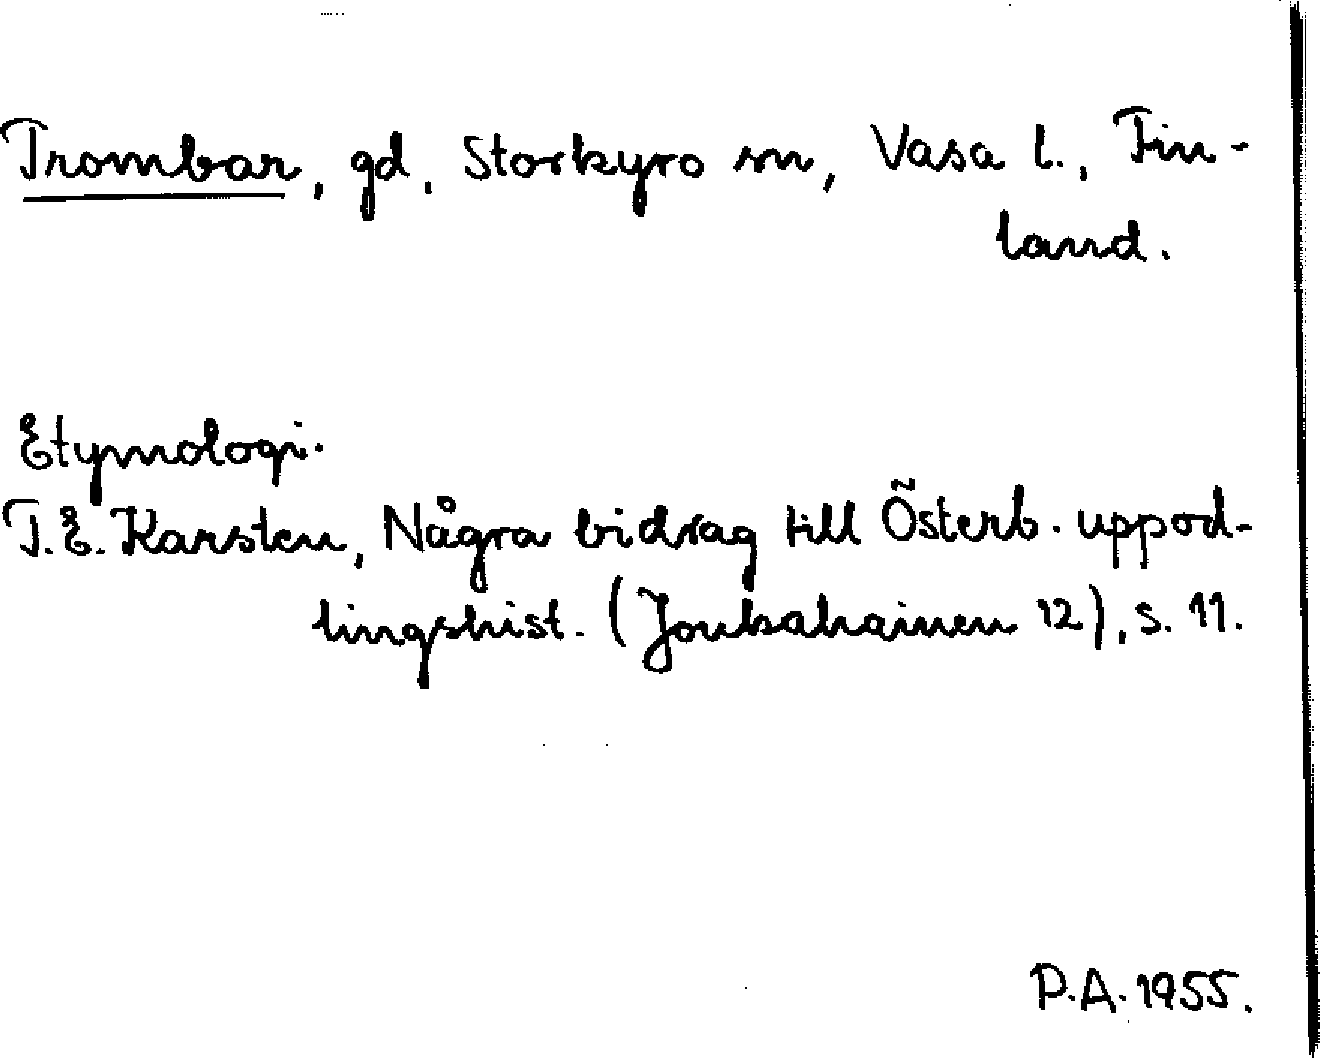 Trombar, gd, Storkyro sn, Vasa l., Fin-
land.
Etymologi.
T.E. Karsten, Några bidrag till Österb. uppod-
lingshist. (Joukahainen 12), s. 11.
P.A. 1955.